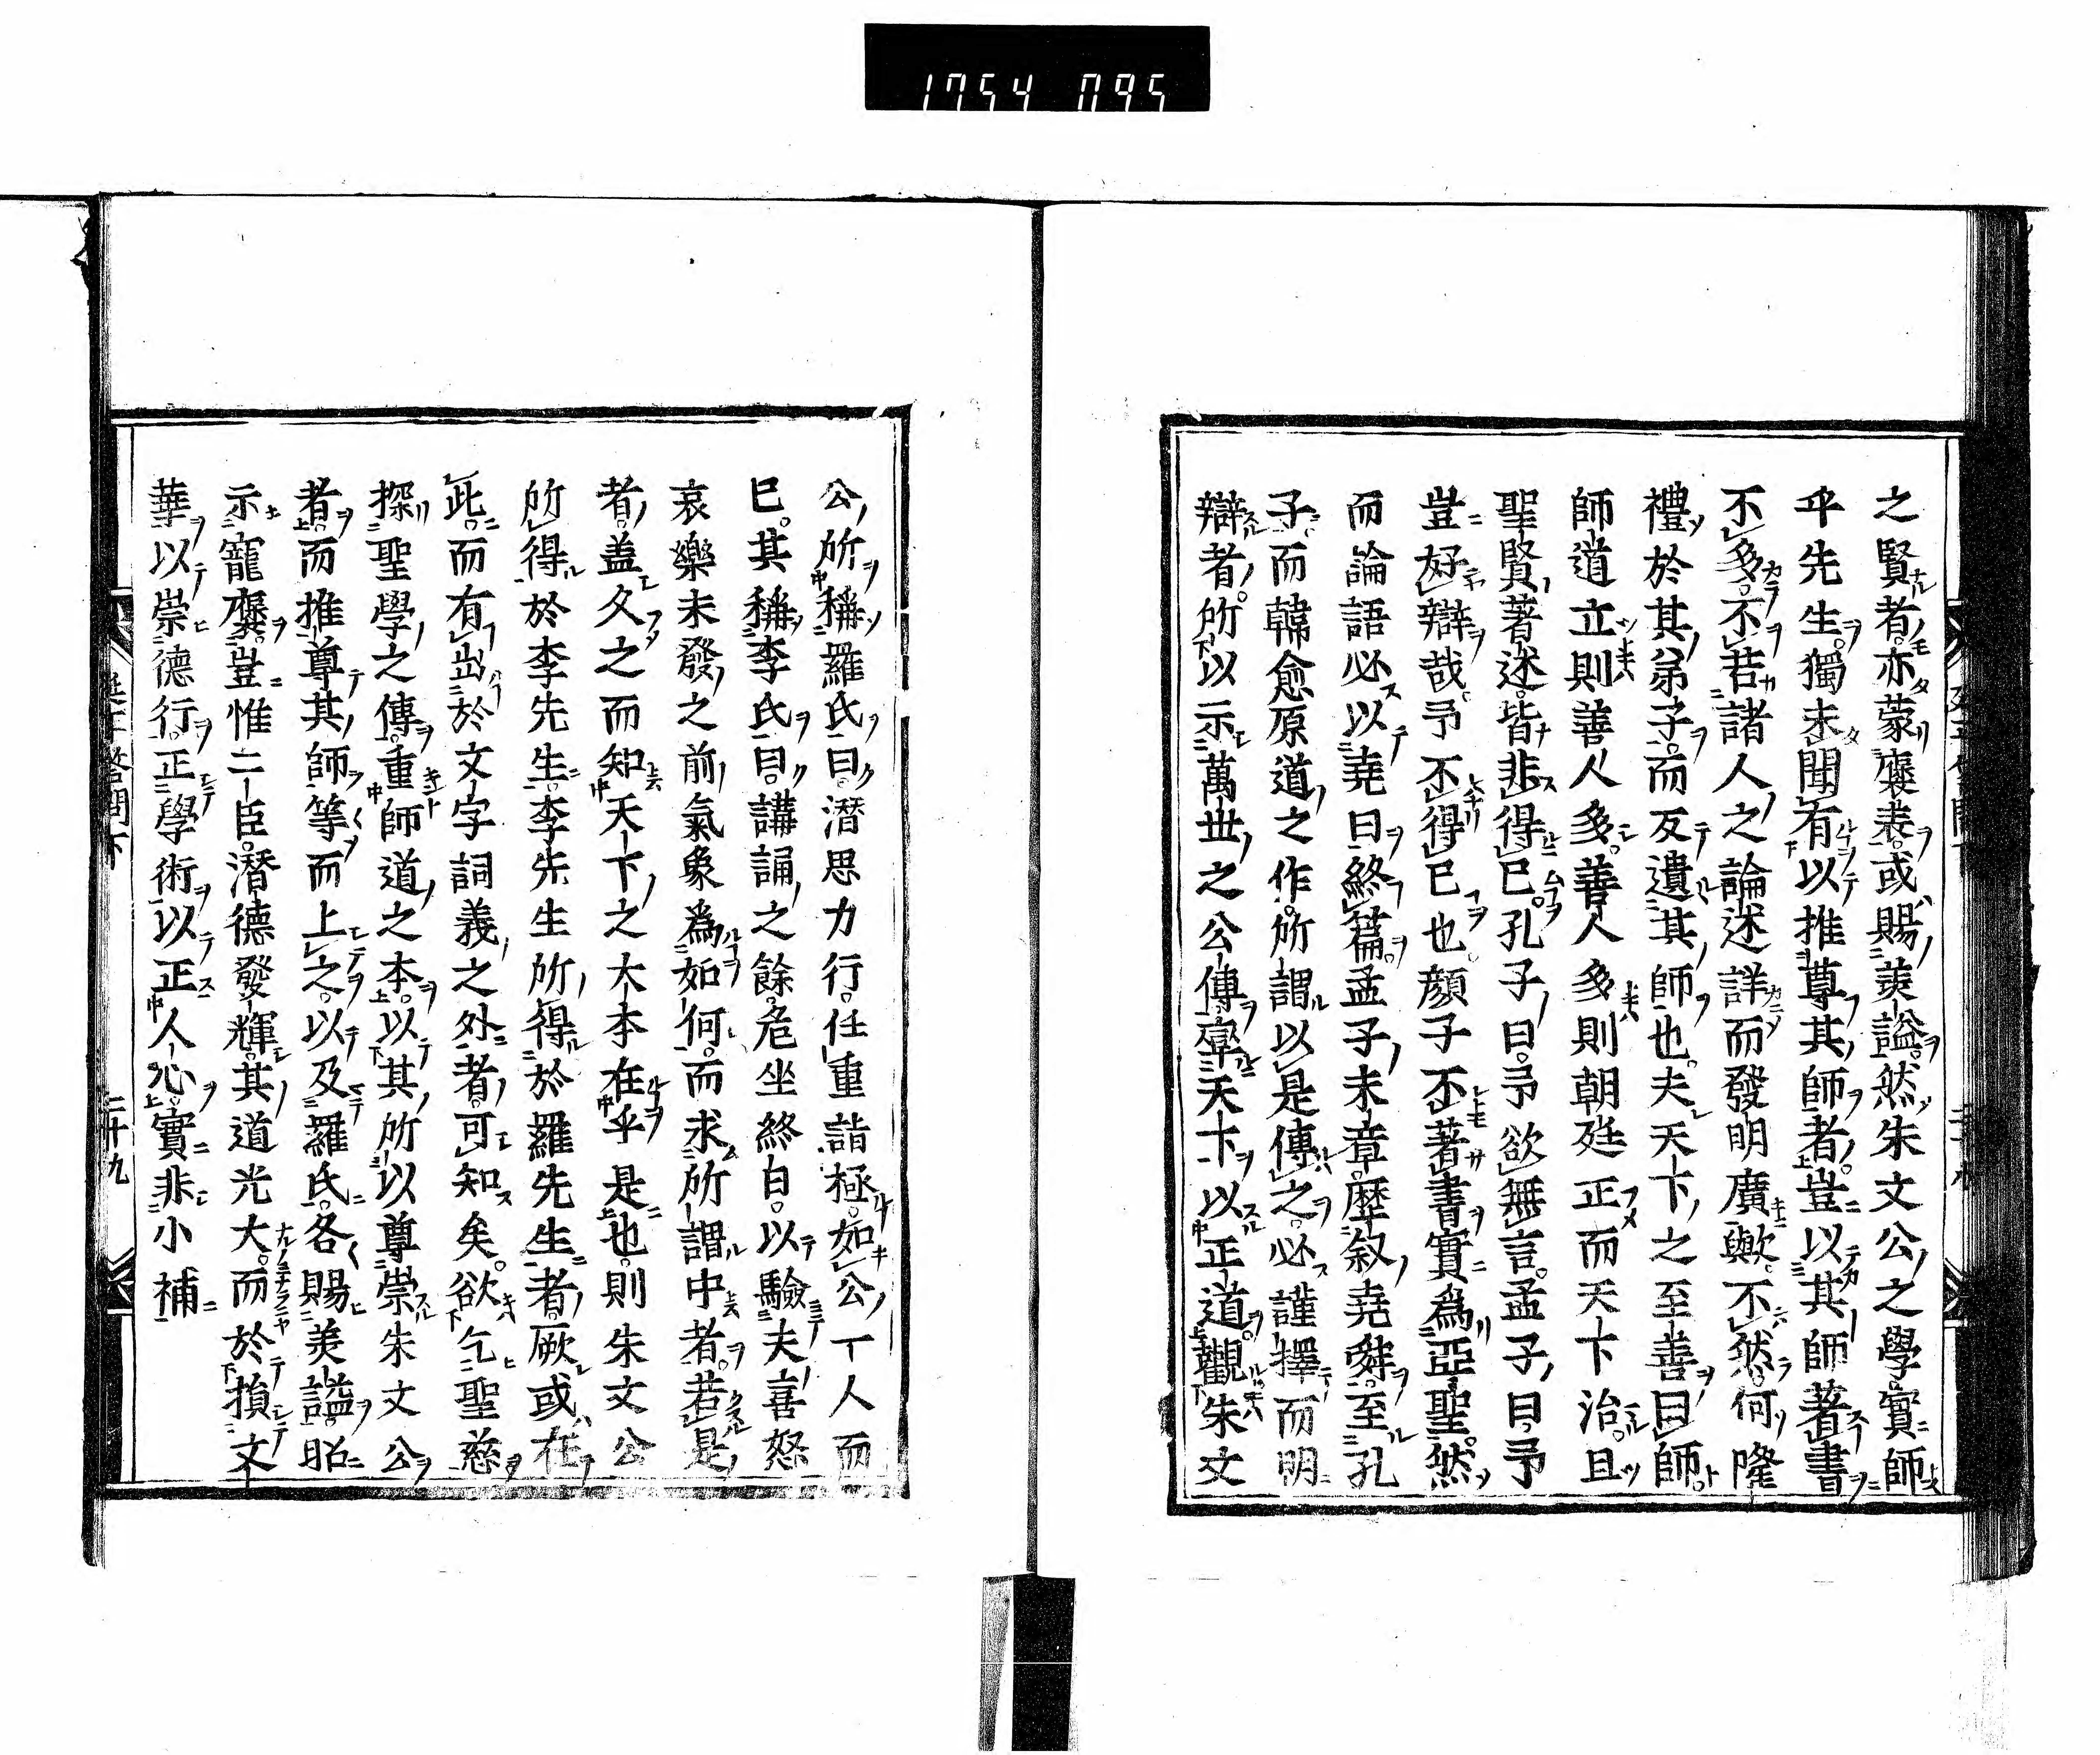 1754 095
之賢者亦蒙褒表或賜美謚然朱文公之學實師
乎先生獨未聞有以推尊其師者豈以其師著書
不多不若諸人之論述詳而發明廣歟不然何隆
禮於其弟子而反遺其師也夫天下之至善曰師
師道立則善人多善人多則朝廷正而天下治且
聖賢著述皆非得已孔子曰予欲無言孟子曰予
豈好辯哉予不得已也顔子不著書實爲亞聖然
而論語必以堯曰終篇孟子末章歷敘堯舜至孔
子而韓愈原道之作所謂以是傳之必謹擇而明
辯者所以示萬世之公傳率天下以正道觀朱文
公所稱羅氏曰潛思力行任重詣極如公一人而
已其稱李氏曰講誦之餘危坐終日以驗夫喜怒
哀樂未發之前氣象爲如何而求所謂中者若是
者盖久之而知天下之大本在乎是也則朱文公
所得於李先生李先生所得於羅先生者厥或在
此而有出於文字詞義之外者可知矣欲乞聖慈
探聖學之傳重師道之本以其所以尊崇朱文公
者而推尊其師等而上之以及羅氏各賜美謚昭
示寵褒豈惟二臣潛德發輝其道光大而於損文
華以崇德行正學術以正人心實非小補
延平答問下
二十九